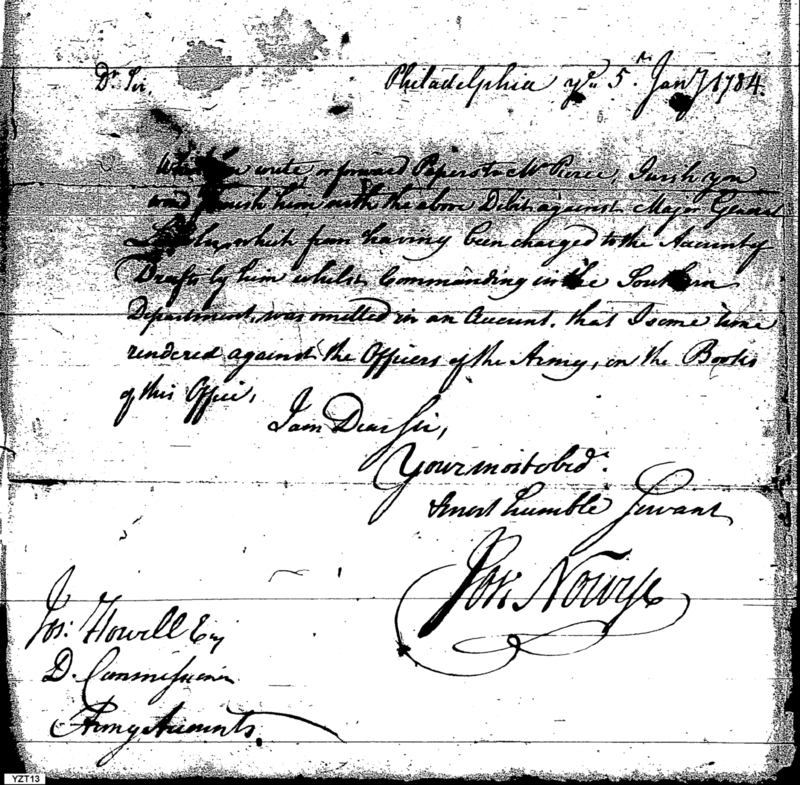 Dr Sir,
Philadelphia ye 5th Jany 1784.
When you write or forward Papers to Mr Pierce, I wish you
woud furnish him with the above Debit against Major General
Lincoln, which from having been charged to the Account of
Drafts by him whilst Commanding in the Southern
Department, was omitted in an Account, that I some time
rendered against the Officers of the Army, on the Books
of this Office,
I am Dear Sir,
Your most obedt
& most humble Servant
Jos: Nourse
Jos: Howell Esq
D. Commissioner
Army Accounts.
YZT13